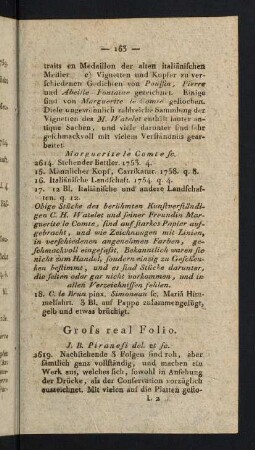 — 163 —
traits en Medaillon der alten italiänischen
Meister. c) Vignetten und Kupfer zu ver-
schiedenen Gedichten von Poussin, Pierre
und Abeille Fontaine gezeichnet. Einige
sind von Marguerite le Comte gestochen.
Diese ungewöhnlich zahlreiche Sammlung der
Vignetten des M. Watelet enthält lauter an-
tique Sachen, und viele darunter sind sehr
geschmackvoll mit vielem Verständniss aus-
geführt.
Marguerite le Comte sc.
2614. Stehender Bettler. 1753. 4.
15. Männlicher Kopf, Carrikatur. 1758. q. 8.
16. Italiänische Landschaft. 1754. q. 4.
17. 12 Bl. Italiänische und andere Landschaf-
ten. q. 12.
Obige Stücke des berühmten Kunstverständi-
gen C. H. Watelet und seiner Freundin Mar-
guerite le Comte, sind auf starkes Papier auf-
gebracht, und wie Zeichnungen mit Linien,
in verschiedenen angenehmen Farben, ge-
schmackvoll eingefasst. Bekanntlich waren sie
nicht zum Handel, sondern einzig zu Geschen-
ken bestimmt, und es sind etliche darunter,
die selten oder gar nicht vorkommen, und in
allen Verzeichnissen fehlen.
18. C. le Brun pinx. Simoneau sc. Mariä Him-
melfahrt. 3 Bl. auf Pappe zusammengefügt,
gelb und etwas brüchigt.
Gross real Folio.
J. B. Piranesi del. et sc.
2619. Nachstehende 3 Folgen sind roh, aber
sämtlich ganz vollständig, und machen ein
Werk aus, welches sich, sowohl in Ansehung
der Drücke, als der Conservation vorzüglich
auszeichnet. Mit vielen auf die Platten gesto-
L 2